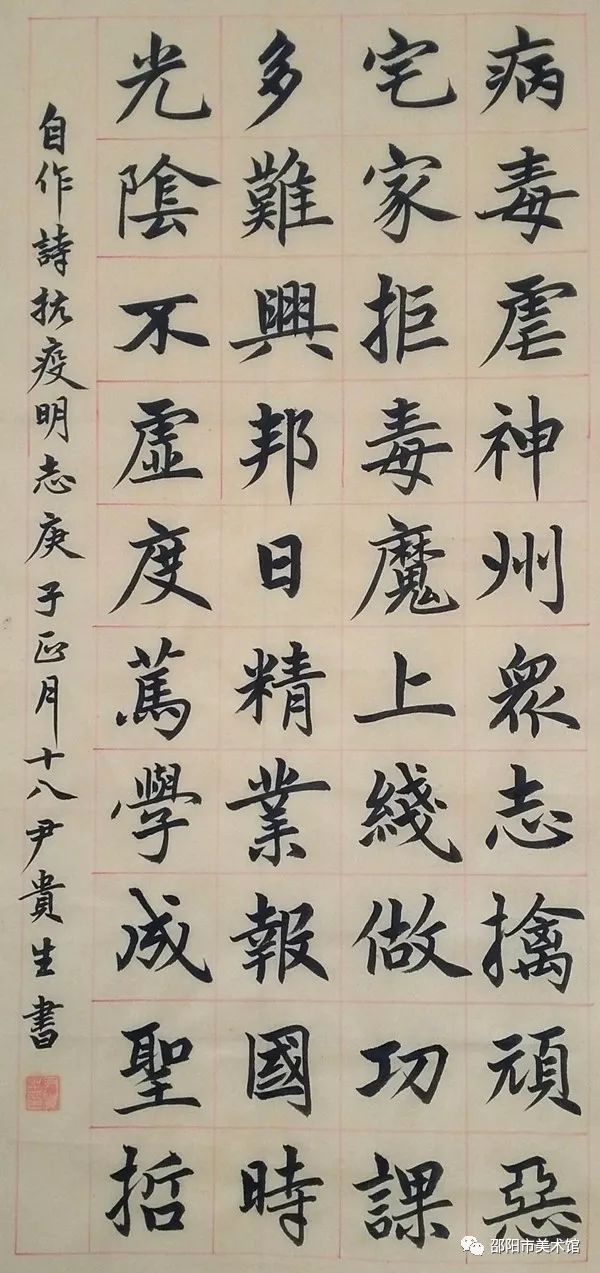 病毒虐神州眾志擒頑惡
宅家拒毒魔上綫做功課
多難興邦日精業報國時
光陰不虛度篤學成聖哲
自作詩抗疫明志庚子正月十八尹貴生書
邵阳市美术馆